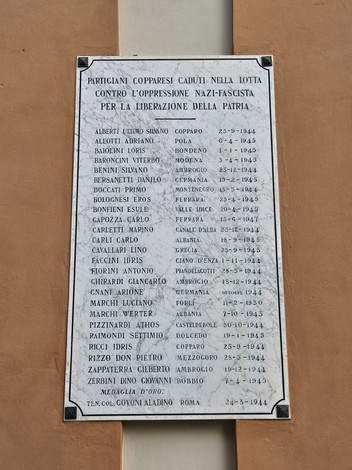 PARTIGIANI COPPARESI CADUTI NELLA LOTTA
CONTRO L'OPPRESSIONE NAZI-FASCISTA
PER LA LIBERAZIONE DELLA PATRIA
ALBERTI ULTIMO SILVANO COPPARO 25-9-1944
ALEOTTI ADRIANO POLA 6-4-1945
BAIOLINI LORIS BONDENO 1-1-1945
BARONCINI VITERBO MODENA 5-4-1945
BENINI SILVANO AMBROGIO 23-12-1944
BERSANETTI DANILO GERMANIA 13-2-1945
BOCCATI PRIMO MONTENEGRO 15-5-1944
BOLOGNESI EROS FERRARA 25-4-1945
BONFIENI ESULE 20-4-1945
CAPOZZA CARLO FERRARA 15-6-1947
CARLETTI MARINO 25-12-1944
CARLI CARLO ALBANIA 18-9-1943
CAVALLARI LINO GRECIA 25-9-1943
FACCINI IDRIS CIANO D'ENZA 1-11-1944
FIORINI ANTONIO PIANDELAGOTTI 28-5-1944
GHIRARDI GIANCARLO AMBROGIO 13-12-1944
GNANI ARIONE GERMANIA OTTOBRE 1944
MARCHI LUCIANO FORLÌ 11-2-1950
MARCHI WERTER ALBANIA 7-10-1943
PIZZINARDI ATHOS CASTELDEBOLE 30-10-1944
RAIMONDI SETTIMIO DOLCEDO 19-1-1945
RICCI IDRIS COPPARO 25-9-1944
RIZZO DON PIETRO MEZZOGORO 28-3-1944
ZAPPATERRA GILBERTO AMBROGIO 19-12-1944
ZERBINI DINO GIOVANNI BOBBIO 7-4-1945
MEDAGLIA D'ORO:
TEN. COL. GOVONI ALADINO ROMA 24-3-1944